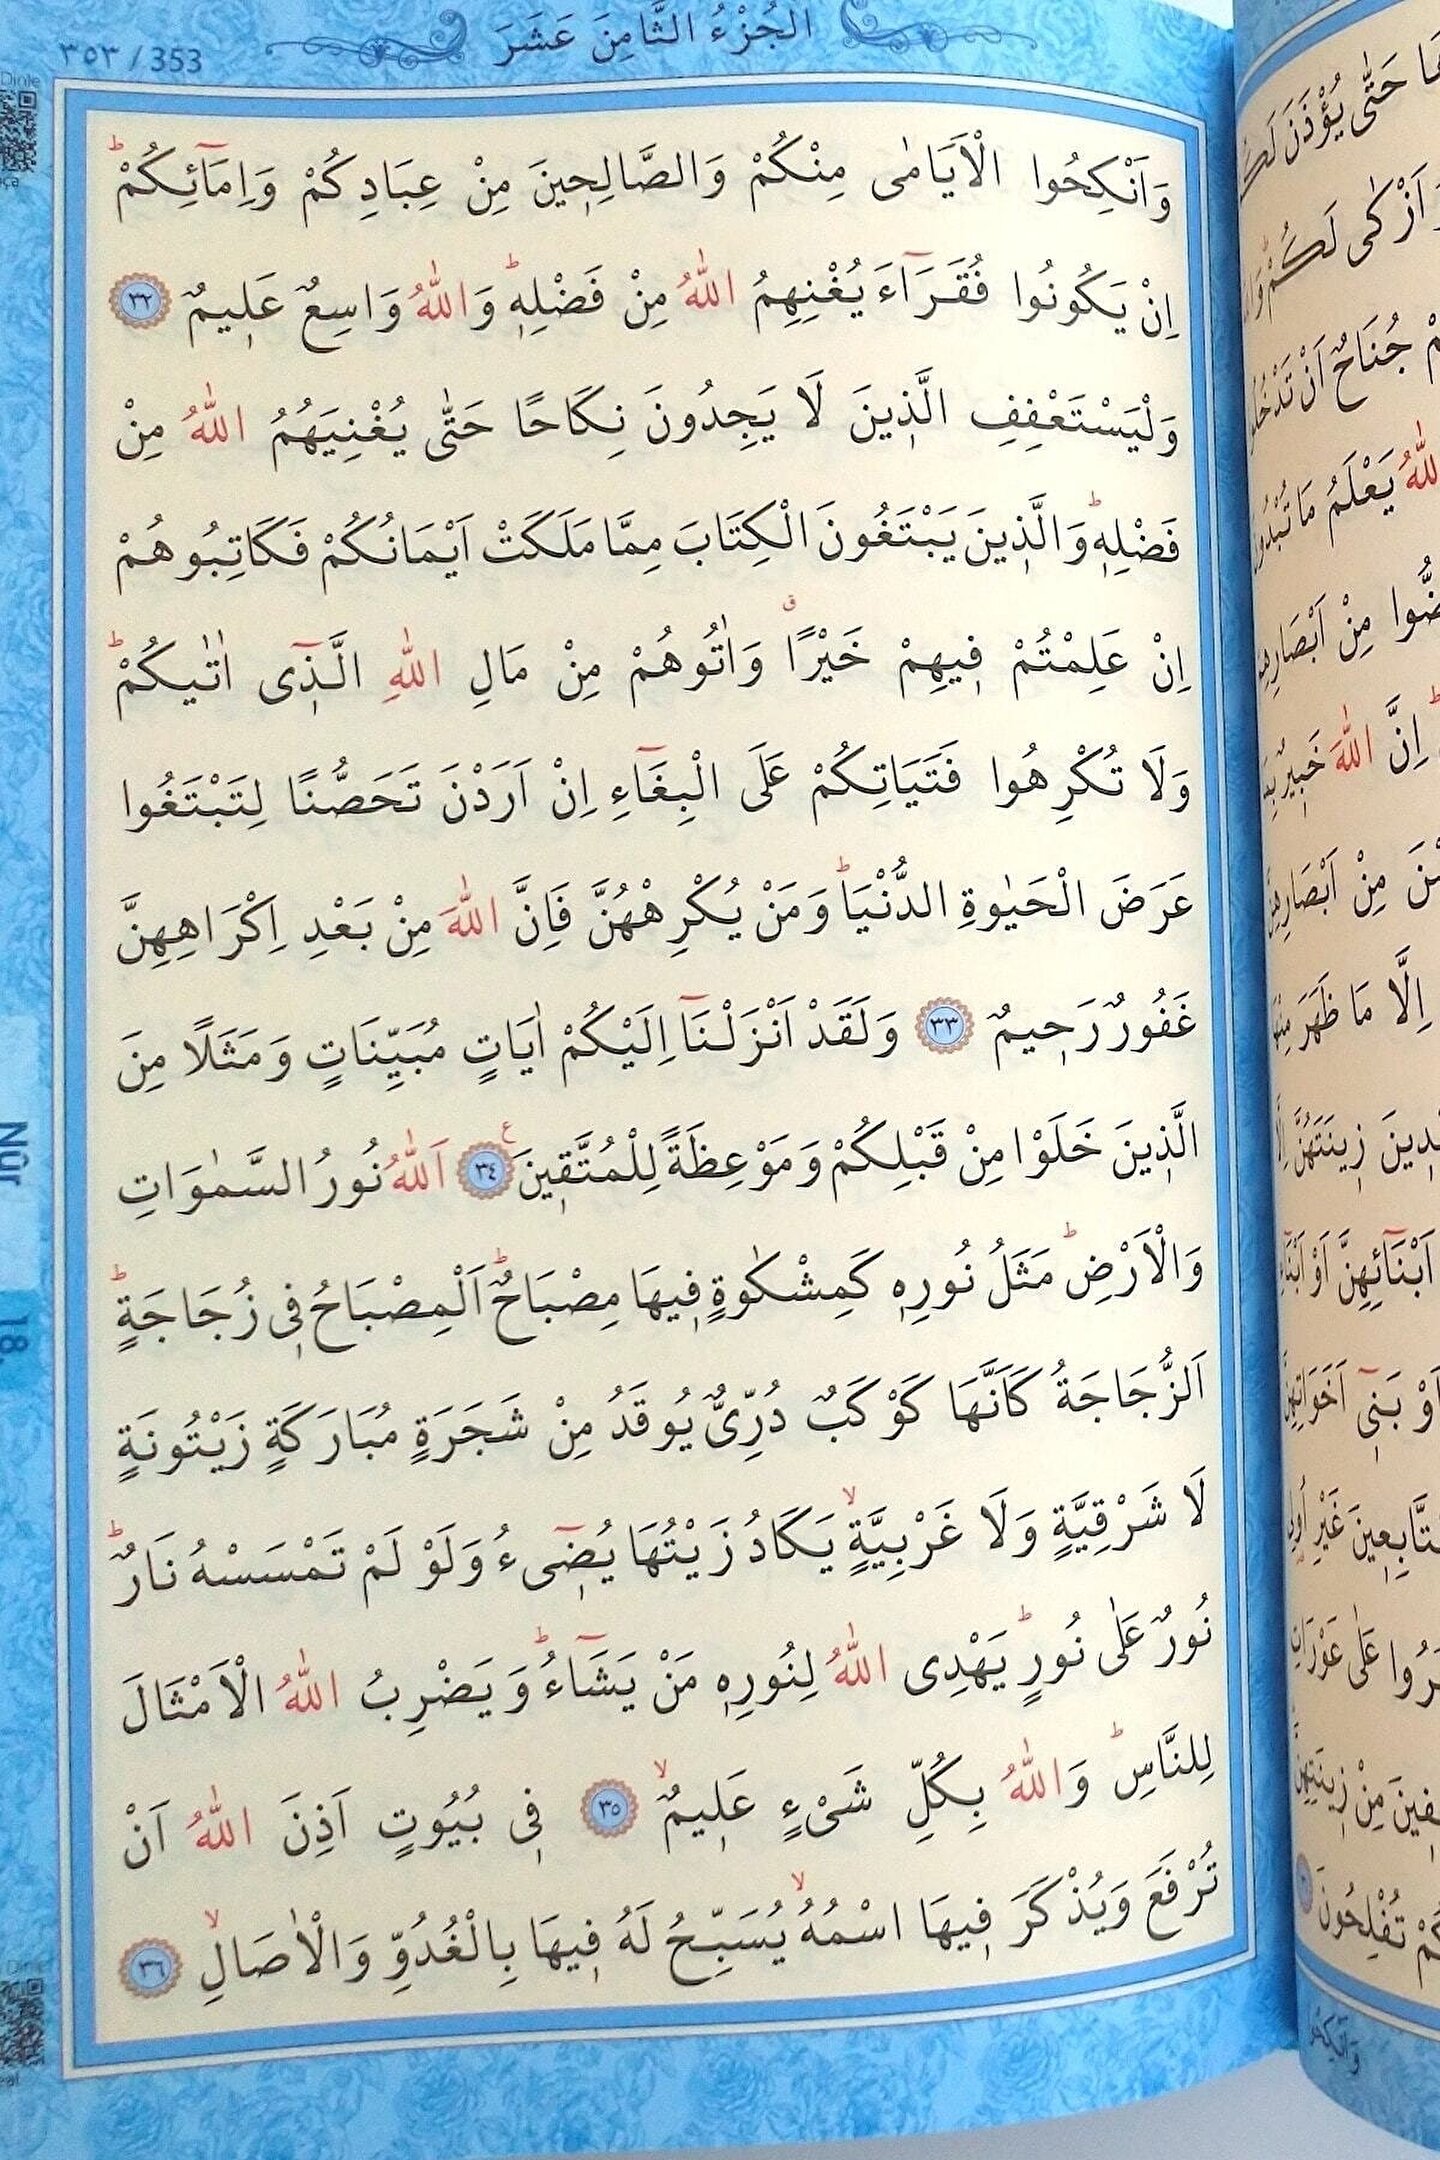 الْجُزْءُ الثَّامِنَ عَشَرَ
٣٥٣ / 353
وَاَنْكِحُوا الْاَيَامٰى مِنْكُمْ وَالصَّالِح۪ينَ مِنْ عِبَادِكُمْ وَاِمَٓائِكُمْۜ
اِنْ يَكُونُوا فُقَرَٓاءَ يُغْنِهِمُ اللّٰهُ مِنْ فَضْلِه۪ۜ وَاللّٰهُ وَاسِعٌ عَل۪يمٌ ٣٢
وَلْيَسْتَعْفِفِ الَّذ۪ينَ لَا يَجِدُونَ نِكَاحًا حَتّٰى يُغْنِيَهُمُ اللّٰهُ مِنْ
فَضْلِه۪ۜ وَالَّذ۪ينَ يَبْتَغُونَ الْكِتَابَ مِمَّا مَلَكَتْ اَيْمَانُكُمْ فَكَاتِبُوهُمْ
اِنْ عَلِمْتُمْ ف۪يهِمْ خَيْرًاۗ وَاٰتُوهُمْ مِنْ مَالِ اللّٰهِ الَّذ۪ٓى اٰتٰيكُمْۜ
وَلَا تُكْرِهُوا فَتَيَاتِكُمْ عَلَى الْبِغَٓاءِ اِنْ اَرَدْنَ تَحَصُّنًا لِتَبْتَغُوا
عَرَضَ الْحَيٰوةِ الدُّنْيَاۜ وَمَنْ يُكْرِهْهُنَّ فَاِنَّ اللّٰهَ مِنْ بَعْدِ اِكْرَاهِهِنَّ
غَفُورٌ رَح۪يمٌ ٣٣ وَلَقَدْ اَنْزَلْنَٓا اِلَيْكُمْ اٰيَاتٍ مُبَيِّنَاتٍ وَمَثَلًا مِنَ
الَّذ۪ينَ خَلَوْا مِنْ قَبْلِكُمْ وَمَوْعِظَةً لِلْمُتَّق۪ينَ ع ٣٤ اَللّٰهُ نُورُ السَّمٰوَاتِ
وَالْاَرْضِۜ مَثَلُ نُورِه۪ كَمِشْكٰوةٍ ف۪يهَا مِصْبَاحٌۜ اَلْمِصْبَاحُ ف۪ى زُجَاجَةٍۜ
اَلزُّجَاجَةُ كَاَنَّهَا كَوْكَبٌ دُرِّىٌّ يُوقَدُ مِنْ شَجَرَةٍ مُبَارَكَةٍ زَيْتُونَةٍ
لَا شَرْقِيَّةٍ وَلَا غَرْبِيَّةٍۙ يَكَادُ زَيْتُهَا يُض۪ٓىءُ وَلَوْ لَمْ تَمْسَسْهُ نَارٌۜ
نُورٌ عَلٰى نُورٍۜ يَهْدِى اللّٰهُ لِنُورِه۪ مَنْ يَشَٓاءُۜ وَيَضْرِبُ اللّٰهُ الْاَمْثَالَ
لِلنَّاسِۜ وَاللّٰهُ بِكُلِّ شَىْءٍ عَل۪يمٌۙ ٣٥ ف۪ى بُيُوتٍ اَذِنَ اللّٰهُ اَنْ
تُرْفَعَ وَيُذْكَرَ ف۪يهَا اسْمُهُۙ يُسَبِّحُ لَهُ ف۪يهَا بِالْغُدُوِّ وَالْاٰصَالِۙ ٣٦
Nûr
18.
حَتّٰى يُؤْذَنَ
اَزْكٰى لَكُمْ
جُنَاحٌ اَنْ
يَعْلَمُ مَا
مِنْ
اِنَّ اللّٰهَ خَب۪يرٌ
مِنْ
اِلَّا مَا ظَهَرَ
ز۪ينَتَهُنَّ
اَبْنَٓائِهِنَّ اَوْ
اَوْ بَن۪ٓى
غَيْرِ
عَلٰى
مِنْ
تُفْلِحُونَ